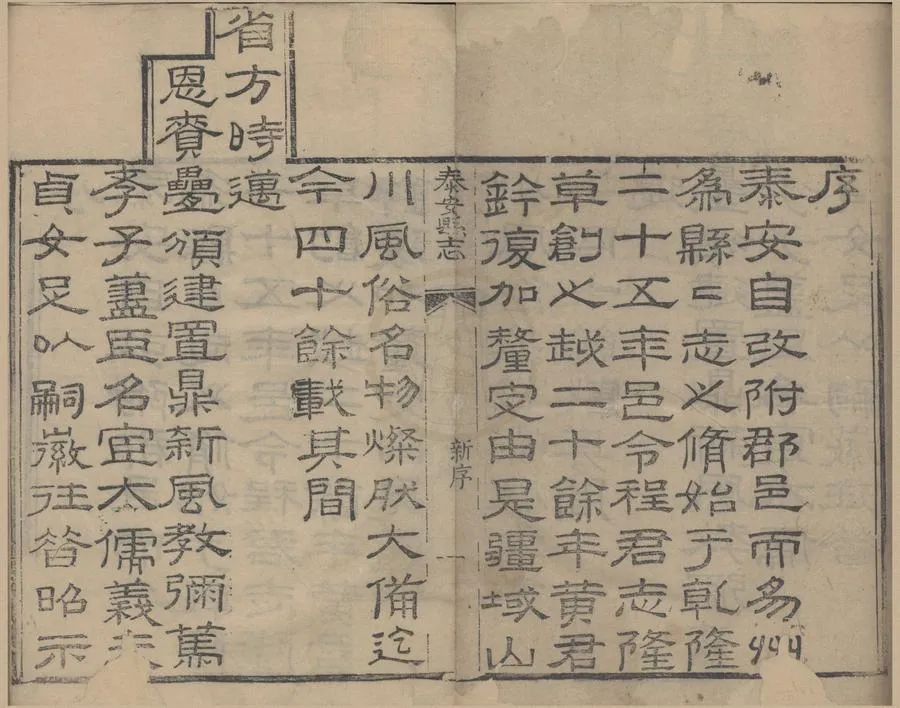 序
泰安自改附郡邑而易州
為縣〻志之脩始于乾隆
二十五年邑令程君志隆
草創之越二十餘年黄君
鈐復加釐定由是疆域山
泰安縣志 新序 一
川風俗名物燦肰大備迄
今四十餘載其間
省方時邁
恩賚疊頒建置鼎新風教彌篤
孝子藎臣名宦大儒義夫
貞女足以嗣徽往昔昭示